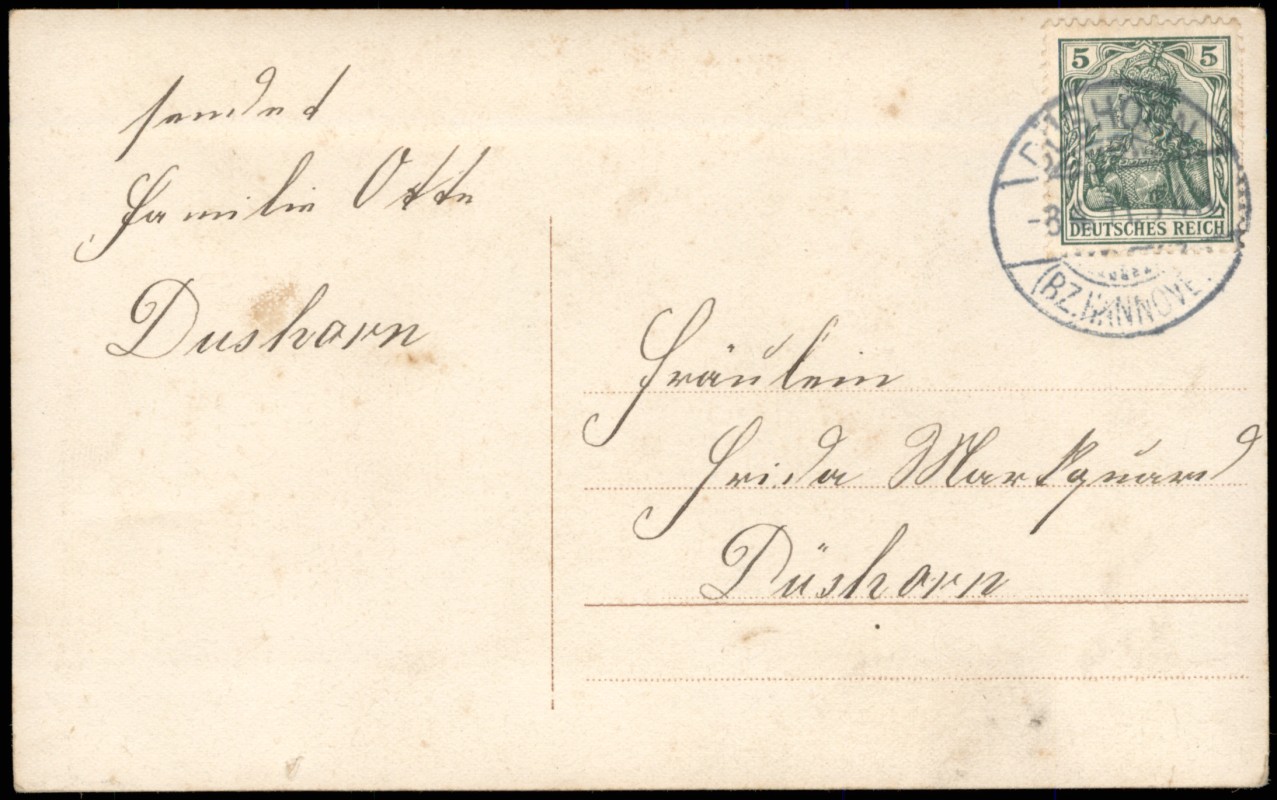 sendet
Familie Otte
Dushorn
5 5
DEUTSCHES REICH
(BZ. HANNOVE
Fräulein
Frida Markquard
Düshorn